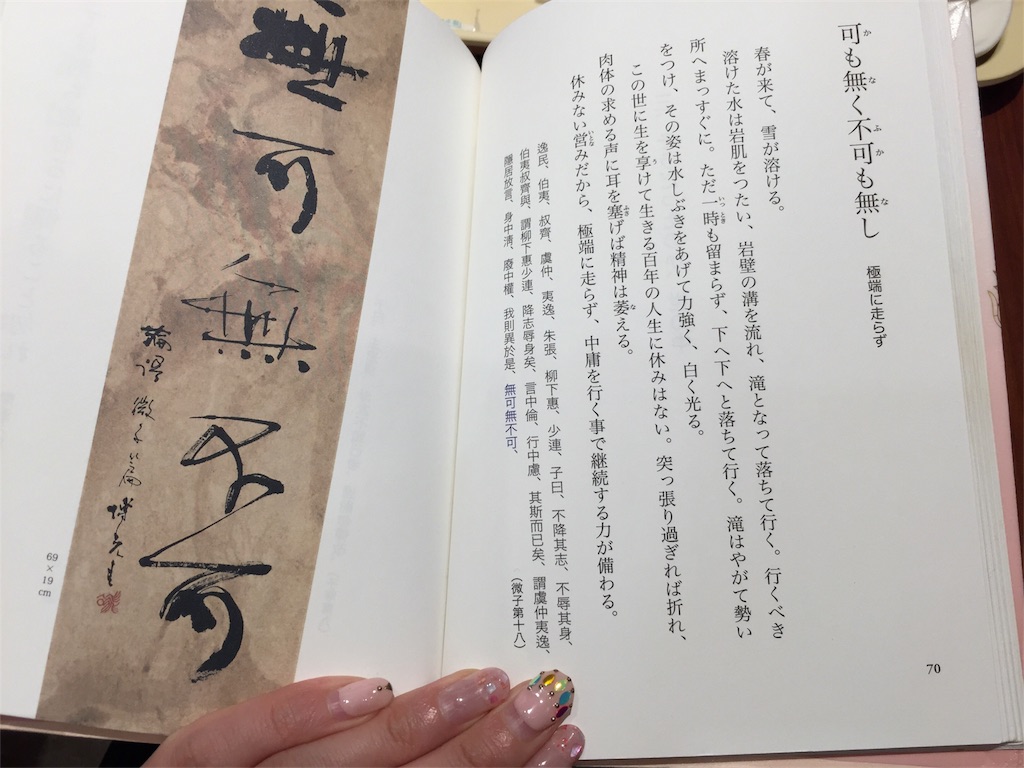 可も無く不可も無し　極端に走らず
春が来て、雪が溶ける。
溶けた水は岩肌をつたい、岩壁の溝を流れ、滝となって落ちて行く。行くべき
所へまっすぐに。ただ一時も留まらず、下へ下へと落ちて行く。滝はやがて勢い
をつけ、その姿は水しぶきをあげて力強く、白く光る。
この世に生を享けて生きる百年の人生に休みはない。突っ張り過ぎれば折れ、
肉体の求める声に耳を塞げば精神は萎える。
休みない営みだから、極端に走らず、中庸を行く事で継続する力が備わる。
逸民、伯夷、叔齊、虞仲、夷逸、朱張、柳下惠、少連、子曰、不降其志、不辱其身、
伯夷叔齊與、謂柳下惠少連、降志辱身矣、言中倫、行中慮、其斯而已矣、謂虞仲夷逸、
隱居放言、身中清、廢中權、我則異於是、無可無不可、（微子第十八）
70
無可無不可
論語 微子篇
69×19cm